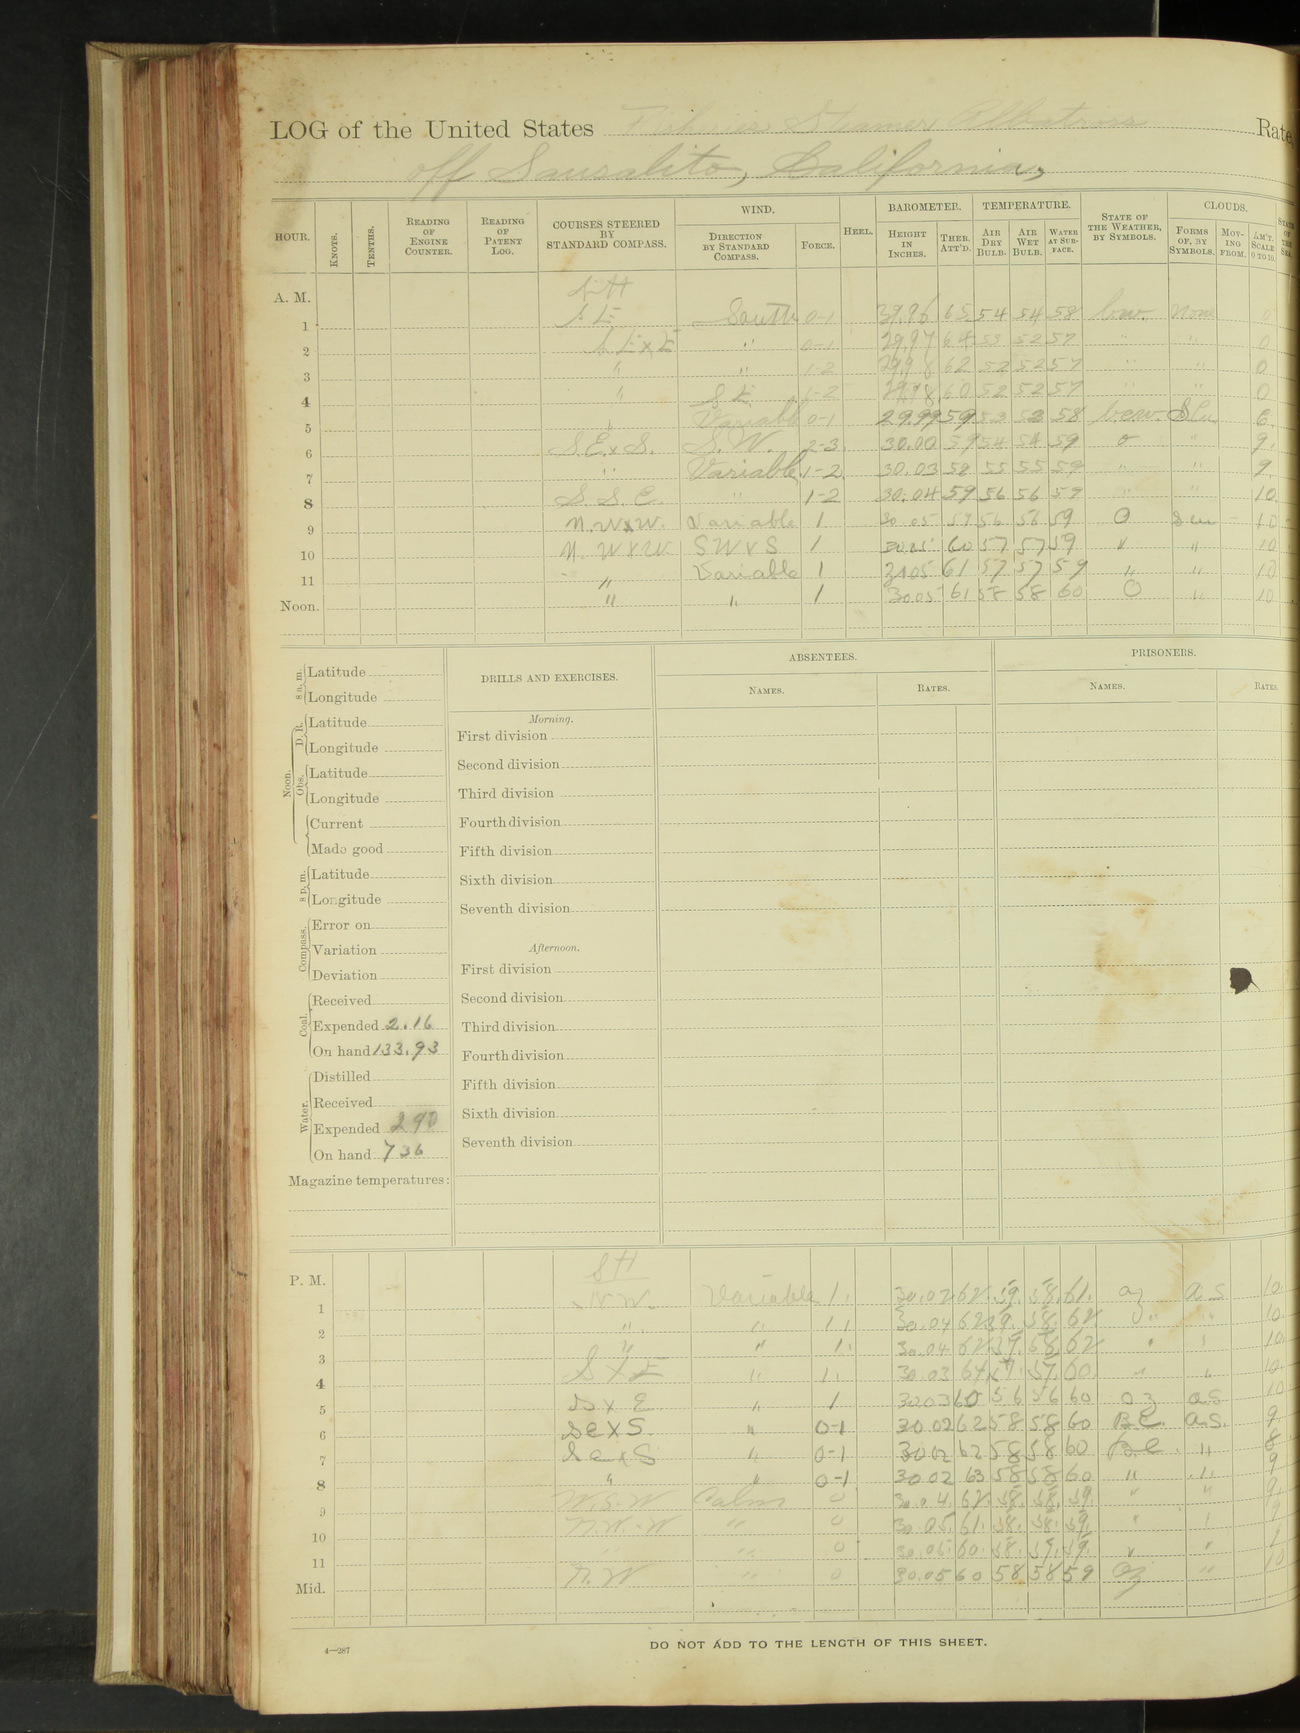 LOG of the United States Fisheries Steamer Albatross Rate
off Sausalito, California,
HOUR. KNOTS. TENTHS. READING OF ENGINE COUNTER. READING OF PATENT LOG. COURSES STEERED BY STANDARD COMPASS. WIND. DIRECTION BY STANDARD COMPASS. FORCE. HEEL. BAROMETER. HEIGHT IN INCHES. THER. ATT'D. TEMPERATURE. AIR DRY BULB. AIR WET BULB. WATER AT SURFACE. STATE OF THE WEATHER, BY SYMBOLS. CLOUDS. FORMS OF, BY SYMBOLS. MOVING FROM. AM'T. SCALE 0 TO 10.
A. M.
1 South 0-1 65 54 54 58 None 0
2 " 0-1 29.97 64 53 52 57 " " 0
3 " " 1-2 29.98 62 52 52 57 " " 0
4 " S E 1-2 29.98 60 52 52 57 " " 0
5 " Variable 0-1 29.99 59 53 53 58 SCu 6.
6 S.E.xS. S.W. 2-3 30.00 59 54 54 59 o " 9.
7 " Variable 1-2 30.03 58 55 55 59 " " 9
8 S. S. E. " 1-2 30.04 59 56 56 59 " " 10
9 N.WxW. Variable 1 30.05 59 56 56 59 O Scu 10
10 N. W x W. S W x S 1 60 57 57 59 " " 10
11 " Variable 1 61 57 57 59 " " 10
Noon. " " 1 30.05 61 58 58 60 O " 10
8 a. m. Latitude
Longitude
Noon. D. R. Latitude
Longitude
Obs. Latitude
Longitude
Current
Made good
8 p. m. Latitude
Longitude
Compass. Error on
Variation
Deviation
Coal. Received
Expended 2.16
On hand 133.93
Water. Distilled
Received
Expended 290
On hand 736
Magazine temperatures:
DRILLS AND EXERCISES.
Morning.
First division
Second division
Third division
Fourth division
Fifth division
Sixth division
Seventh division
Afternoon.
First division
Second division
Third division
Fourth division
Fifth division
Sixth division
Seventh division
ABSENTEES.
NAMES. RATES.
PRISONERS.
NAMES. RATES.
P. M.
1 N.W. Variable 1. 30.02 62 59. 58. 61. a s 10.
2 " " 1. 30.04 62 59. 58. 62 " 10.
3 " " 1. 30.04 62 59. 58. 62 " 10.
4 S x E " 1. 30.03 64 57. 60. " " 10.
5 S x E " 1 30.03 60 56 56 60 as 10
6 Se x S " 0-1 30.02 62 58 58 60 B.C. a.s. 9
7 Se x S " 0-1 30.02 62 58 58 60 B.C. " 8
8 " " 0-1 30.02 63 58 58 60 " " 9
9 W.S.W Calm 0 30.04. 62. 58. 58. 59. " " 9.
10 N.W.-W " 0 30.05. 61. 58. 58. 59. " " 9
11 " " 0 60. 58. 59. " "
Mid. N.W " 0 30.05 60 58 58 59 " 10
4—287
DO NOT ADD TO THE LENGTH OF THIS SHEET.